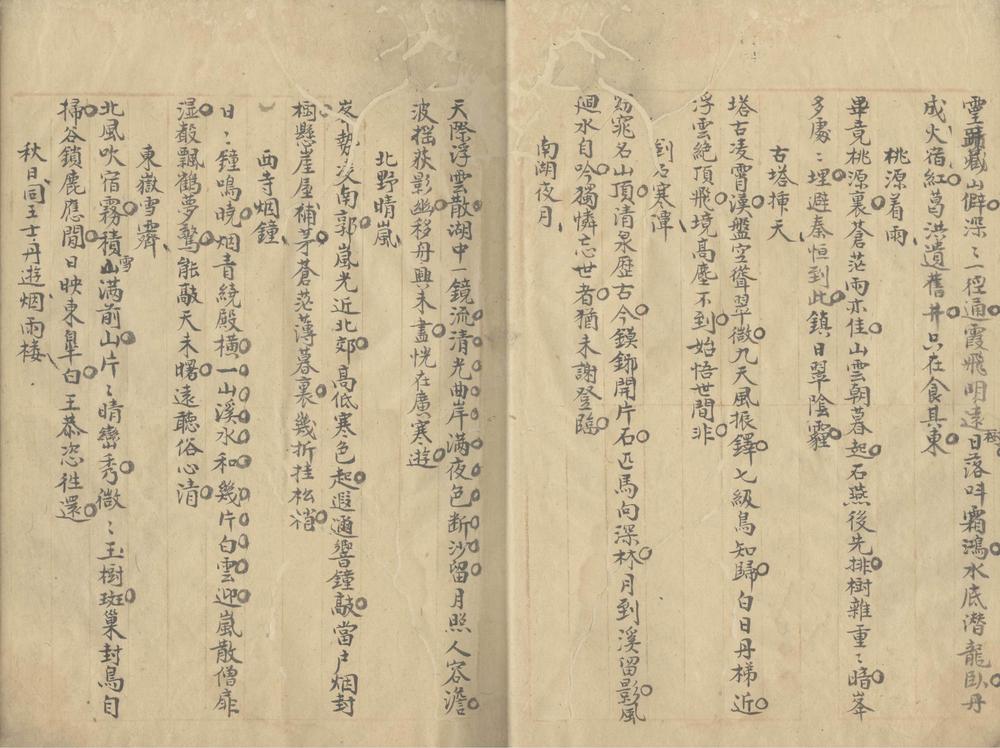 靈蹟藏山僻深〻一徑通霞飛明遠樹日落叫霜鴻水底潛龍臥丹
成火宿紅葛洪遺舊井只在食其東
桃源着雨
畢竟桃源裏蒼茫雨亦佳山雲朝暮起石燕後先排樹雜重〻暗峯
多處〻埋避秦恒到此鎮日翠陰霾
古塔揷天
塔古凌霄漢盤空聳翠微九天風振鐸七級鳥知歸白日丹梯近
浮雲絕頂飛境高塵不到始悟世間非
寒潭
窈窕名山頂清泉歷古今鏌鋣開片石匹馬向深林月到溪留影風
迴水自吟獨憐忘世者猶未謝登臨
南湖夜月
天際浮雲散湖中一鏡流清光曲岸滿夜色断沙留月照人容澹
波搖荻影幽移舟興未盡恍在廣寒遊
北野晴嵐
岌勢凌南郭嵐光近北郊高低寒色起遐邇響鐘敲當戶烟封
樹懸崖屋補茅蒼茫薄暮裏幾折挂松梢
西寺烟鐘
日〻鐘鳴曉烟青繞殿橫一山溪水和幾片白雲迎嵐散僧扉
濕聲飄鶴夢驚能敲天未曙遠聽俗心清
東嶽雪霽
北風吹宿霧積雪滿前山片〻晴巒秀微〻玉樹斑巢封鳥自
掃谷鎖鹿應閒日映東皐白王恭恣徃還
秋日同王士丹遊烟雨楼